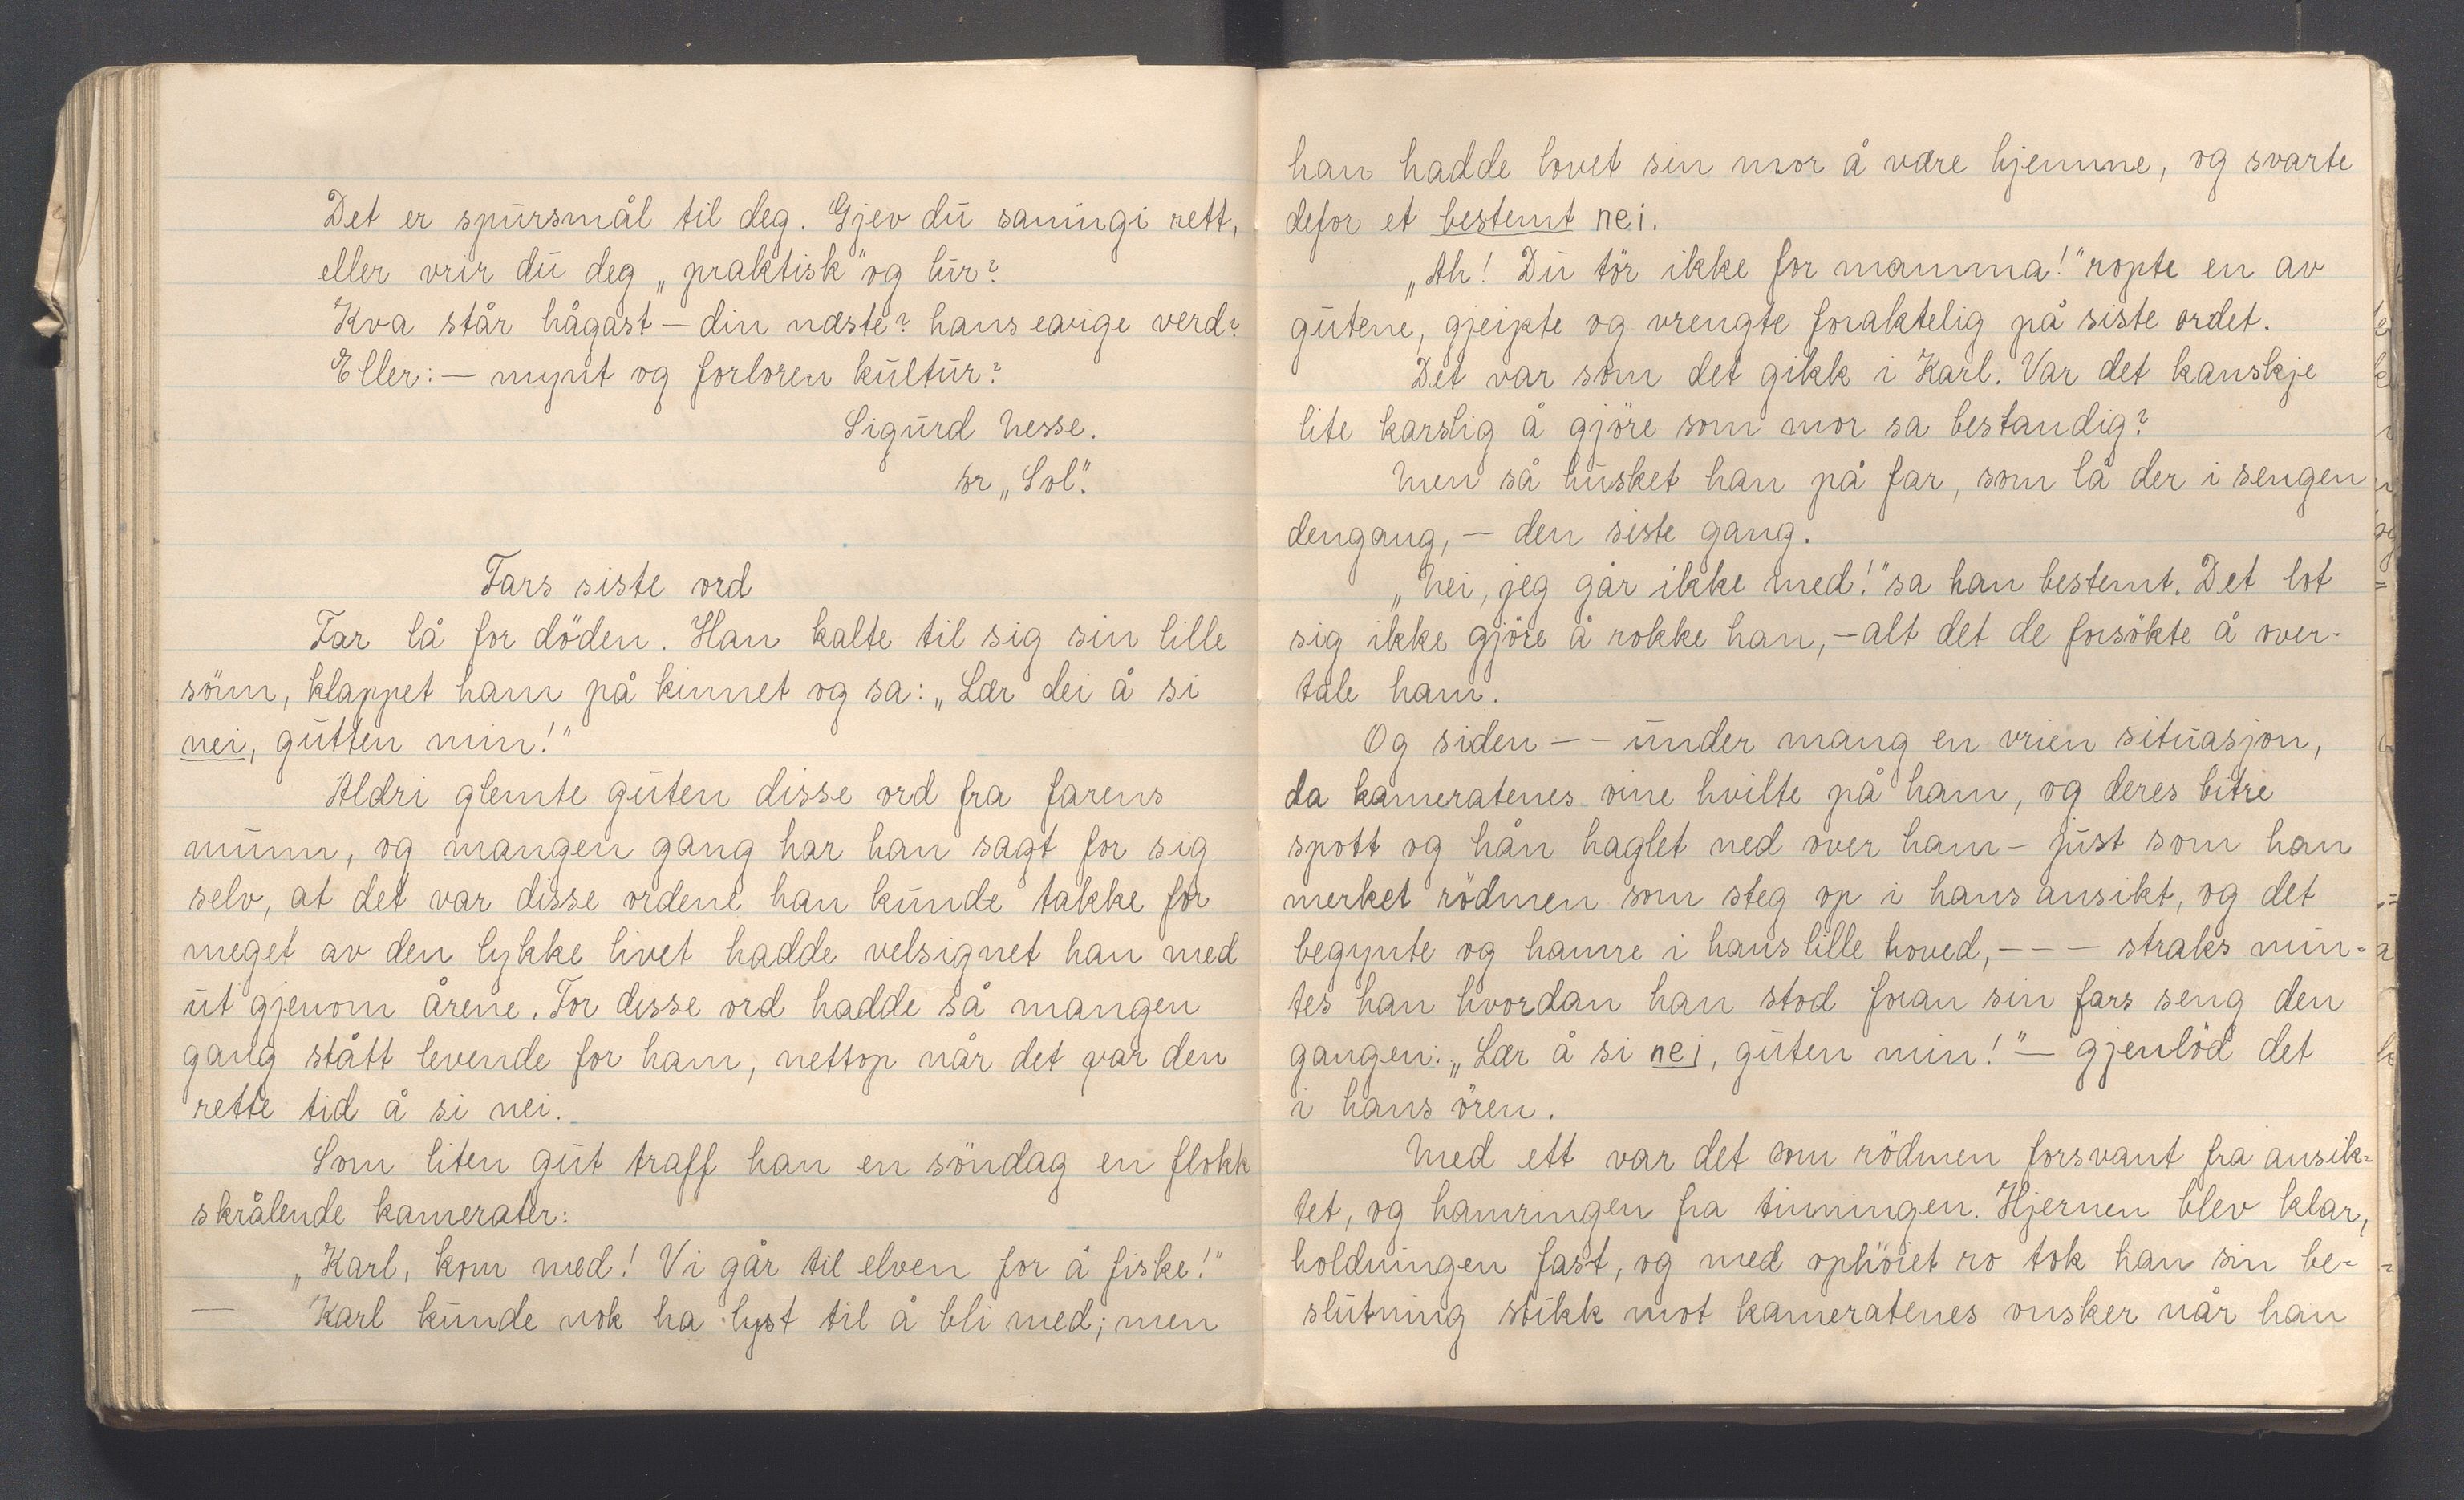 Det er spursmål til deg. Gjev du sanningi rett,
eller vrir du deg „praktisk" og lur?
Kva står hågast — din næste? hans eavige verd?
Eller: — mynt og forloren kultur?
Sigurd Nesse.
or „Sol".
Fars siste ord
Far lå for döden. Han kalte til sig sin lille
sönn, klappet ham på kinnet og sa: „Lær dei å si
nei, gutten min!"
Aldri glemte guten disse ord fra farens
munn, og mangen gang har han sagt for sig
selv, at det var disse ordene han kunde takke for
meget av den lykke livet hadde velsignet han med
ut gjenom årene. For disse ord hadde så mangen
gang stått levende for ham, nettop når det var den
rette tid å si nei.
Som liten gut traff han en söndag en flokk
skrålende kamerater:
„Karl, kom med! Vi går til elven for å fiske!"
— Karl kunde nok ha lyst til å bli med; men
han hadde lovet sin mor å være hjemme, og svarte
defor et bestemt nei.
„Ah! Du tör ikke for mamma!" ropte en av
gutene, gjeipte og vrengte foraktelig på siste ordet.
Det var som det gikk i Karl. Var det kanskje
lite karslig å gjöre som mor sa bestandig?
Men så husket han på far, som lå der i sengen
dengang, — den siste gang.
„Nei, jeg går ikke med!" sa han bestemt. Det lot
sig ikke gjöre å rokke han, — alt det de forsökte å over-
tale ham.
Og siden -- under mang en vrien situasjon,
da kameratenes oine hvilte på ham, og deres bitre
spott og hån haglet ned over ham - just som han
merket rödmen som steg op i hans ansikt, og det
begynte og hamre i hans lille hoved, - - - straks min-
tes han hvordan han stod foran sin fars seng den
gangen: „Lær å si nei, guten min!" — gjenlöd det
i hans ören.
Med ett var det som rödmen forsvant fra ansik-
tet, og hamringen fra tinningen. Hjernen blev klar,
holdningen fast, og med ophöiet ro tok han sin be-
slutning stikk mot kameratenes onsker når han